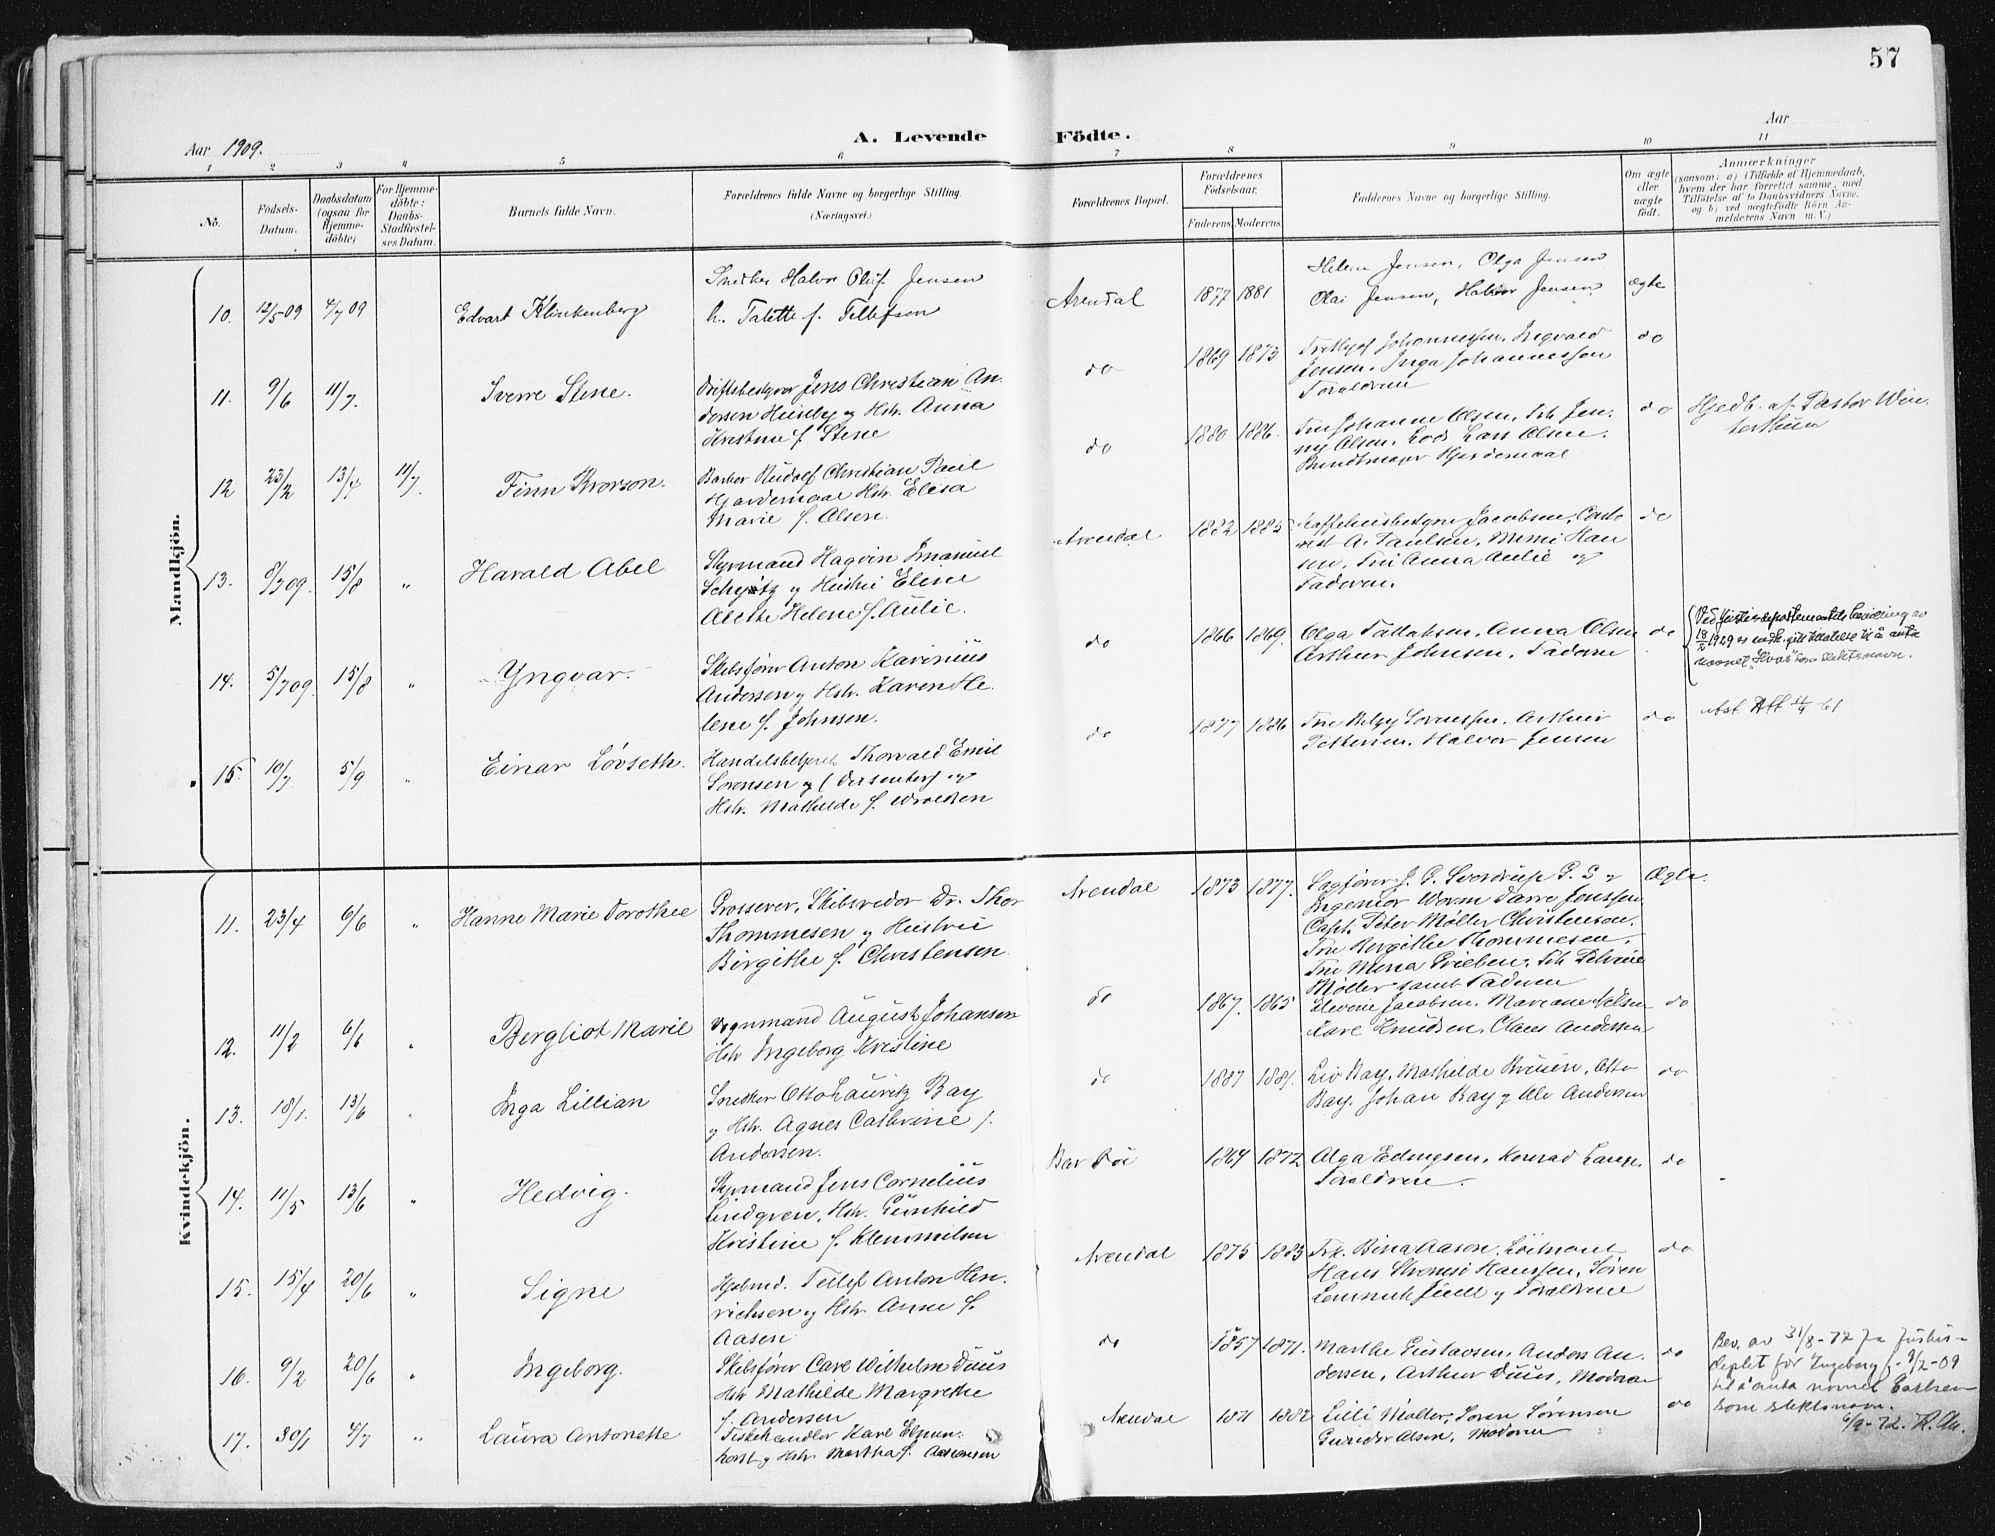 57
A. Levende Födte.
Aar 1909.
Aar
1 2 3 4 5 6 7 8 9 10 11
No.
Födsels-Datum.
Daabsdatum (ogsaa for Hjemme-döbte)
For Hjemme-döbte: Daabs-Stadfæstel-ses Datum.
Barnets fulde Navn.
Forældrenes fulde Navne og borgerlige Stilling. (Næringsvei.)
Forældrenes Bopæl.
Forældrenes Födselsaar.
Faderens Moderens
Faddernes Navne og borgerlige Stilling.
Om ægte eller uægte födt.
Anmærkninger
(saasom: a) i Tilfælde af Hjemmedaab, hvem der har forrettet samme, med Tilföielse af to Daabsvidners Navne. og b) ved uægtefödte Börn An-melderens Navn m. V.)
Mandkjön.
10. 12/5 09 4/7 09 Edvart Klinkenberg
Snedker Halvor Oluf Jensen
h. Talette f. Tellefsen
Arendal 1877 1881
Helene Jensen, Olga Jensen
Olai Jensen, Halvor Jensen ægte
11. 9/6 11/7. Sverre Stene.
Driftsbestyrer Jens Christian An-
dersen Huseby og Hstr. Anna
Kristine f. Stene
do 1869 1873
Johannessen, Ingvald
Jensen, Inga Johannessen
Forældrene do
12 23/2 13/4 11/7. Finn Brorson.
Barber Rudolf Christian Paul
Hjardemaal Hstr. Elisa
Marie f. Olsen.
do 1880 1886.
Fru Johanne Olsen, Frk Jen-
ny Olsen, Lods Lars Olsen,
Bundtmager Hjardemaal do
Hjedb. af Pastor Win-
terhuus
13. 8/7 09. 15/8 " Harald Abel
Styrmand Hagvin Imanuel
Schyøtz og Hustru Elise
Alethe Helene f. Aulie.
Arendal 1882 1885
Kaffehusbestyrer Jacobsen,
A. Paulsen, Mimi Han
sen, Fru Anna Aulie og
Faderen. do
14. 5/7 09. 15/8 " Yngvar.
Skibsfører Anton Karinius
Andersen og Hstr. Karen He-
lene f. Johnsen.
do 1866 1869.
Olga Tallaksen, Anna Olsen
Arthur Johnsen, Faderne do
Ved Justisdepartementets bevilling av
18/2 1929 er medd. gitt tillatelse til å anta
navnet "Hvas" som slektsnavn.
15. 10/7 5/9 " Einar Løvseth.
Handelsbetjent Thorvald Emil
Sørensen og
Hstr. Mathilde f.
do 1877 1886
Fru Betzy Sørensen, Arthur
Pettersen, Halvor Jensen do
Att. 61
Kvindekjön.
11. 23/4 6/6 " Hanne Marie Dorothee
Grosserer, Skibsreder Dr. Thor
Thommesen og Hustru
Birgithe f. Christensen
Arendal 1873 1877.
Sagfører J. G. Sverdrup P. S og
Ingeniør Worm Darre Jenssen,
Capt. Peter Møller Christensen,
Fru Bergithe Thommesen,
Fru Mena Grieben, Frk
Møller samt Faderen Ægte.
12. 11/2 6/6 " Bergliot Marie
Vognmand August Johansen
Hstr Ingeborg Kristine
do 1867. 1865
Elverine Jacobsen, Mariane Nilsen
Karl Knudsen, Claus Andersen do
13. 18/1. 13/6 " Inga Lillian
Snedker Otto Lauritz Bay
og Hstr. Agnes Cathrine f.
Andersen.
do 1887 1881.
Liv Bay, Mathilde Bruun, Otto
Bay, Johan Bay og Ole Andersen do
14. 11/5 13/6 " Hedvig.
Styrmand Jens Cornelius
Lindgren, Hstr. Gunhild
Kristine f. Klemmetsen
Barbue 1864 1872
Olga Edingsen, Konrad
Forældrene. do
15. 15/4 20/6 " Signe
Hjulmd. Tellef Anton Hen-
richsen og Hstr Anne f.
Aasen
Arendal 1875 1883
Frk. Bina Aasen, Løitnant
Hans Stromsø Hanssen, Søren
Lemmich Juell og Forældrene do
16. 9/2 20/6 " Ingeborg.
Skibsfører Carl Wilhelm Duus
Hstr Mathilde Margrethe
f. Andersen
do 1857 1871.
Marthe Gustavsen, Anders An-
dersen, Arthur Duus, Moderen do
Bev. av 31/8-72 fra Justis-
deptet for Ingeborg f. 9/2-09
til å anta navnet Carlsen
som slektsnavn.
6/9-72.
17. 30/1 4/7 " Laura Antonette
Fiskehandler Karl Elmen-
horst og Hstr Martha f. Aanonsen
Arendal 1871 1882
Lilli Møller, Søren Sørensen
Gunder Olsen, Moderen do